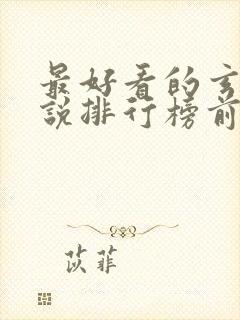 最好看的玄
說排行榜前
苡菲